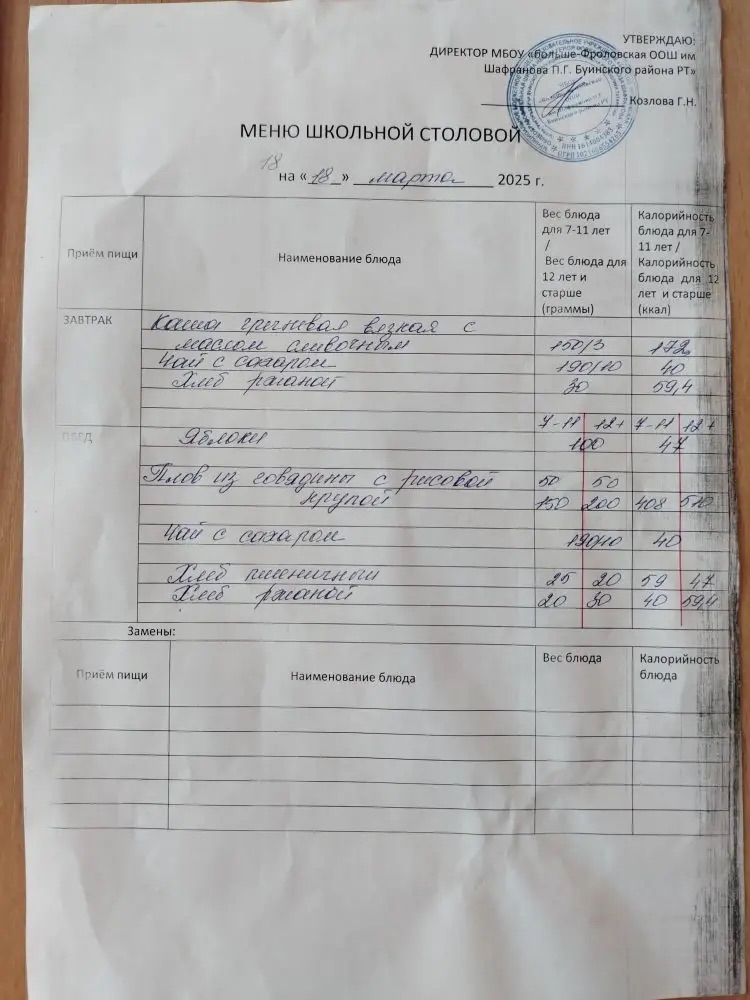 УТВЕРЖДАЮ:
ДИРЕКТОР МБОУ «Больше-Фроловская ООШ им
Шафранова П.Г. Буинского района РТ»
Козлова Г.Н.
МЕНЮ ШКОЛЬНОЙ СТОЛОВОЙ
18
на «18» марта 2025 г.
Приём пищи
Наименование блюда
Вес блюда для 7-11 лет / Вес блюда для 12 лет и старше (граммы)
Калорийность блюда для 7-11 лет / Калорийность блюда для 12 лет и старше (ккал)
ЗАВТРАК Каша гречневая вязкая с
маслом сливочным 150/3 172
Чай с сахаром 190/10 40
Хлеб ржаной 30 59,4
7-11 12+ 7-11 12+
ОБЕД Яблоки 100 47
Плов из говядины с рисовой 50 50
крупой 150 200 408 510
Чай с сахаром 190/10 40
Хлеб пшеничный 25 20 59 47
Хлеб ржаной 20 30 40 59,4
Замены:
Приём пищи
Наименование блюда
Вес блюда
Калорийность
блюда